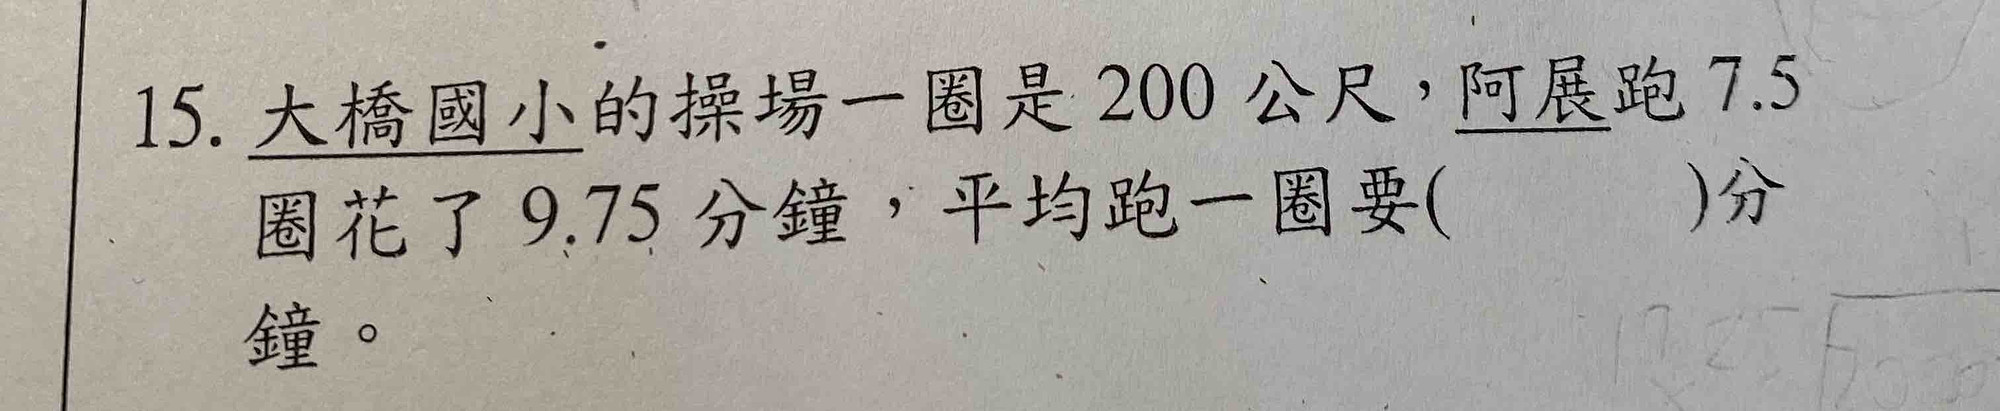 15. 大橋國小的操場一圈是 200 公尺，阿展跑 7.5
圈花了 9.75 分鐘，平均跑一圈要(　　　)分
鐘。